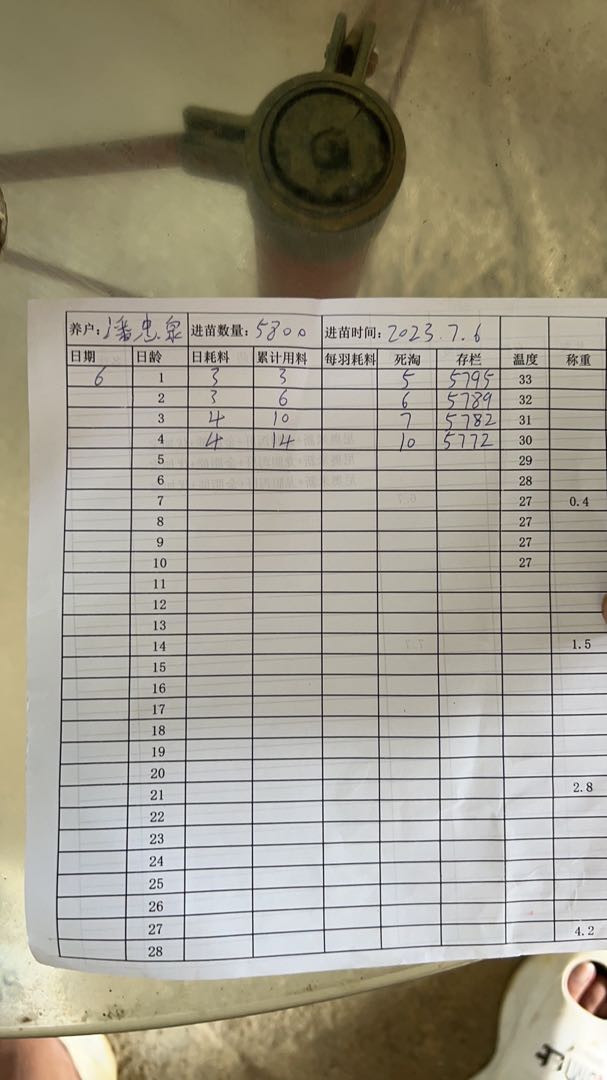 养户:潘忠泉 进苗数量:5800 进苗时间:2023.7.6
日期 日龄 日耗料 累计用料 每羽耗料 死淘 存栏 温度 称重
6 1 3 3 5 5795 33
2 3 6 6 5789 32
3 4 10 7 5782 31
4 4 14 10 5772 30
5 29
6 28
7 27 0.4
8 27
9 27
10 27
11
12
13
14 1.5
15
16
17
18
19
20
21 2.8
22
23
24
25
26
27 4.2
28